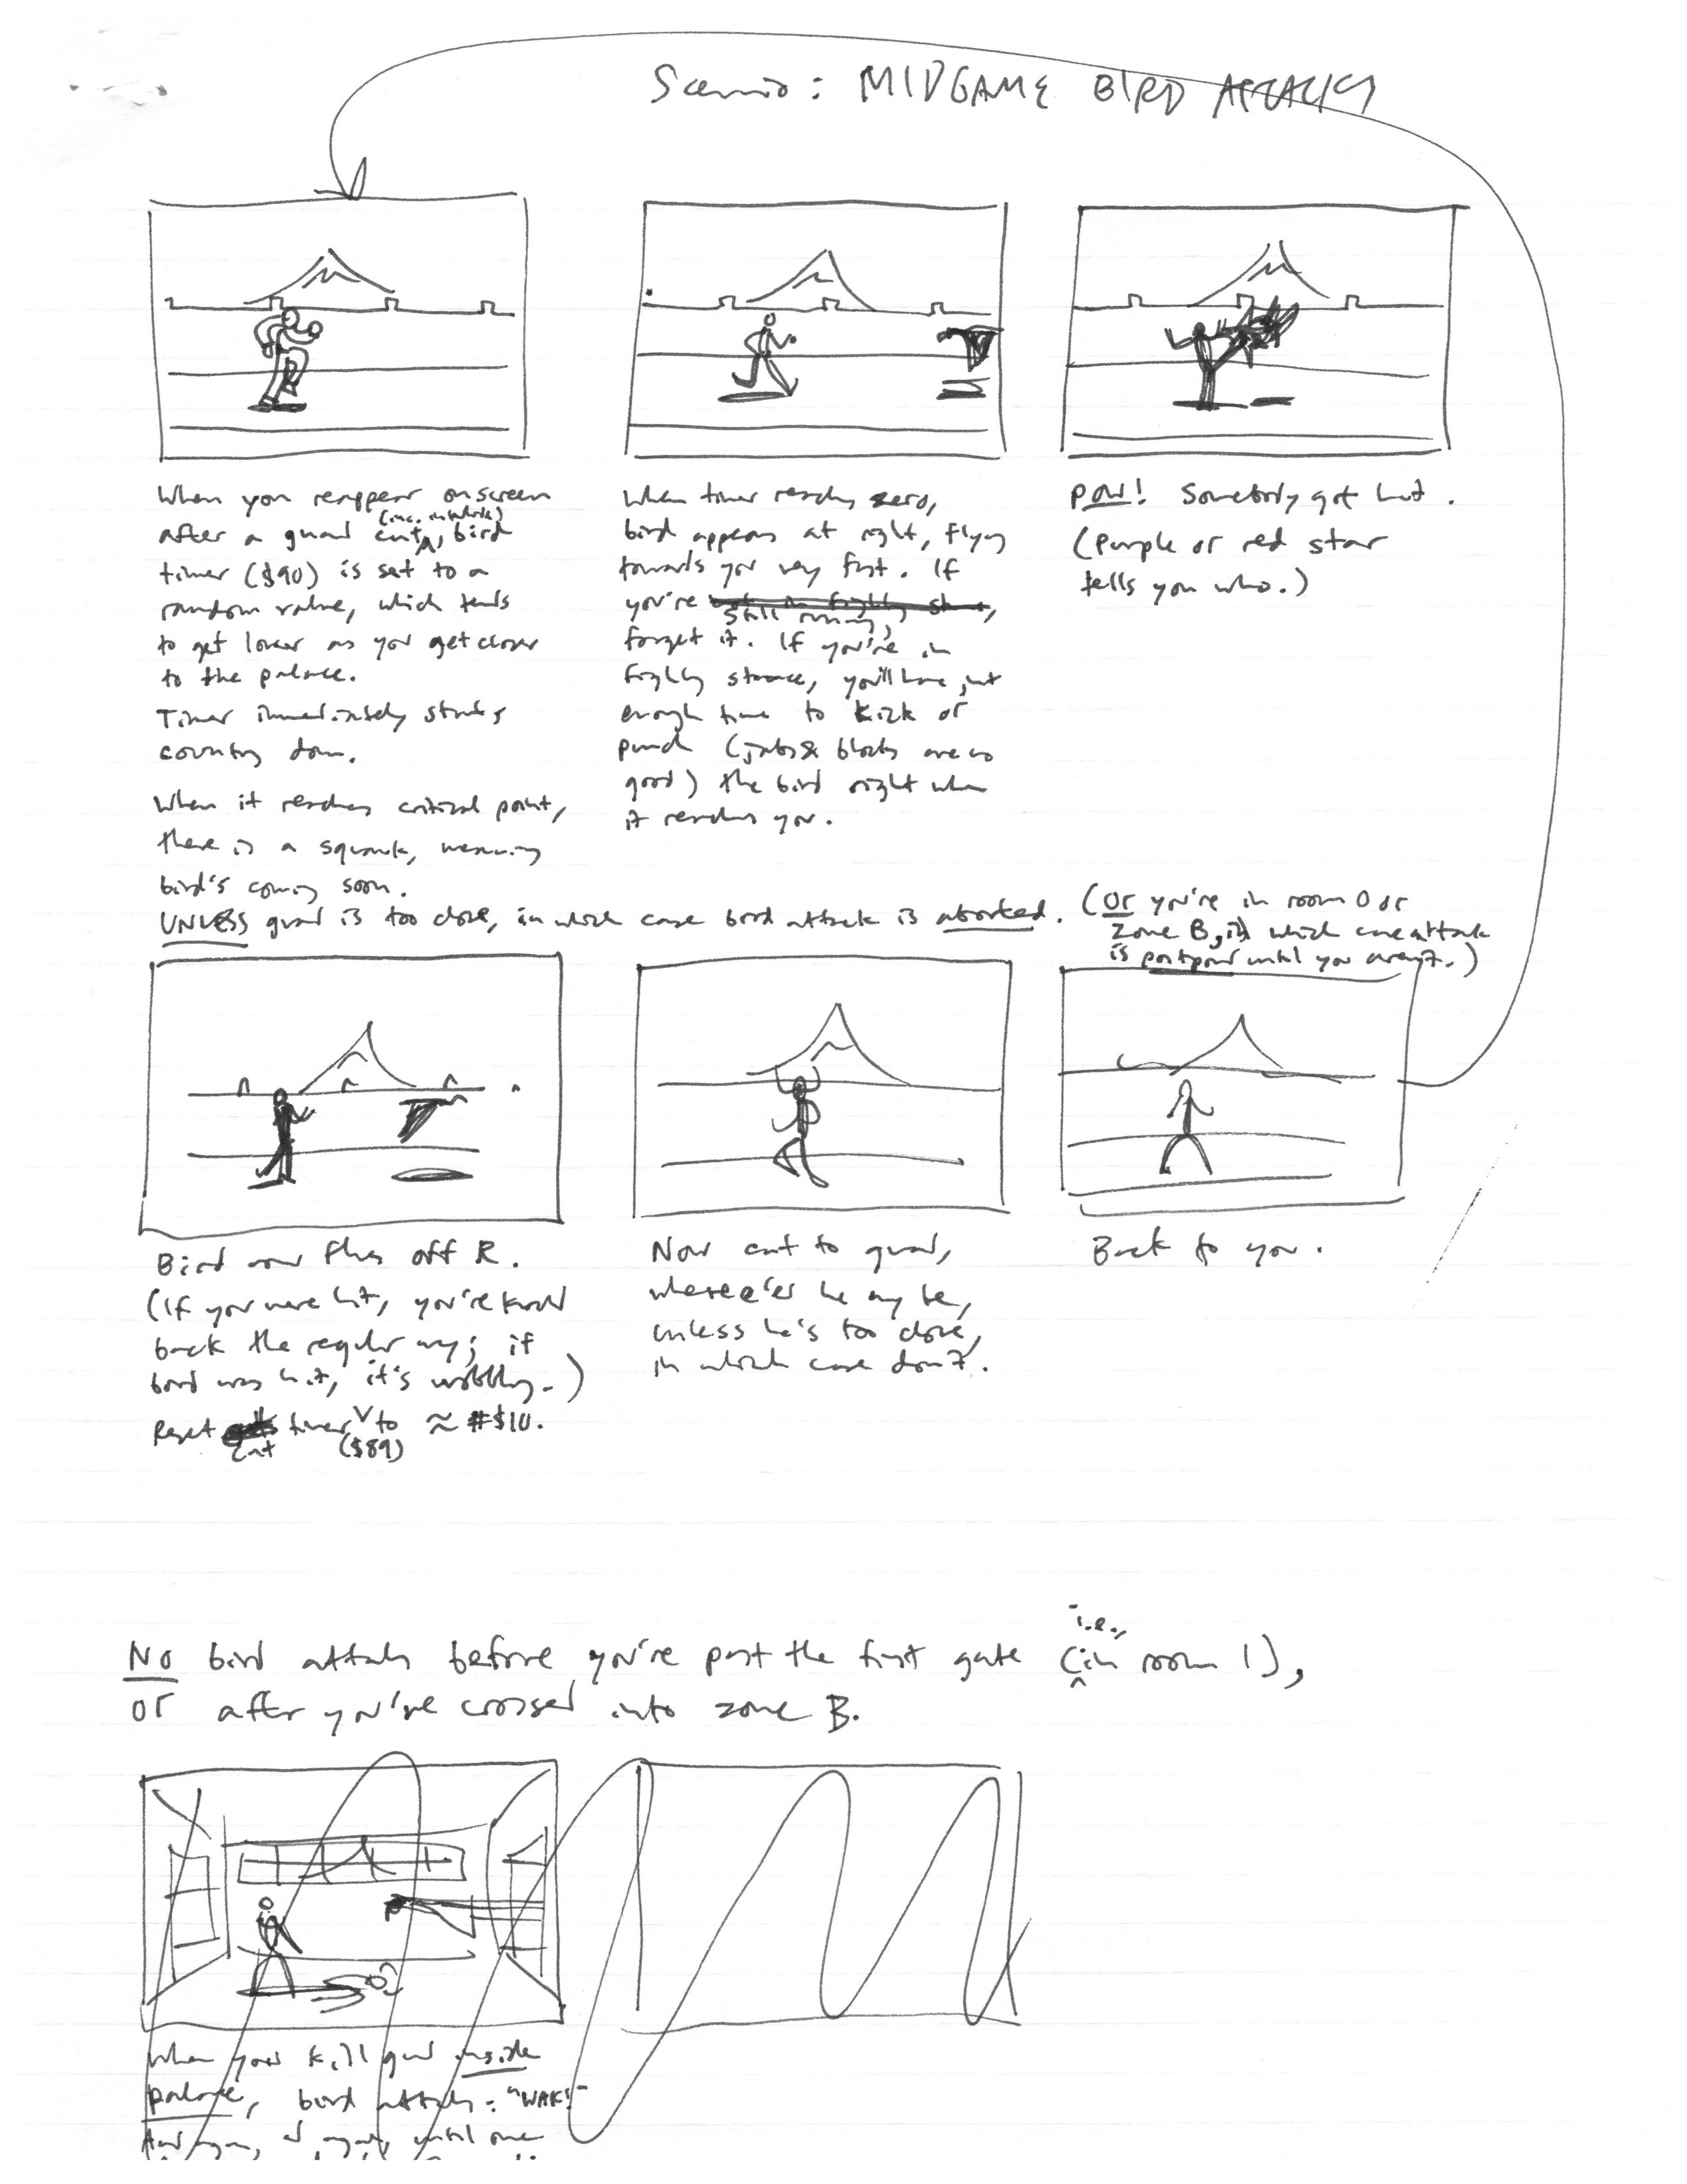 Scenario: MIDGAME BIRD ATTACKS
When you reappear onscreen
after a guard cut (inc. initial), bird
timer ($90) is set to a
random value, which tends
to get lower as you get closer
to the palace.
Timer immediately starts
counting down.
When it reaches critical point,
there is a squawk, meaning
bird's coming soon.
UNLESS guard is too close, in which case bird attack is aborted. (Or you're in room 0 or
zone B, in which case attack
is postponed until you aren't.)
When timer reaches zero,
bird appears at right, flying
towards you very fast. If
you're still running,
forget it. If you're in
fighting stance, you'll have just
enough time to kick or
punch (jabs & blocks are no
good) the bird right when
it reaches you.
POW! Somebody got hit.
(Purple or red star
tells you who.)
Bird now flies off R.
(If you were hit, you're knocked
back the regular way; if
bird was hit, it's wobbling.)
Reset cut timer ($89) to ≈ #$10.
Now cut to guard,
where'er he may be,
unless he's too close,
in which case don't.
Back to you.
No bird attacks before you're past the first gate (i.e., in room 1),
or after you've crossed into zone B.
When you kill guard inside
palace, bird attacks. "WAK!"
And again, and again, until one